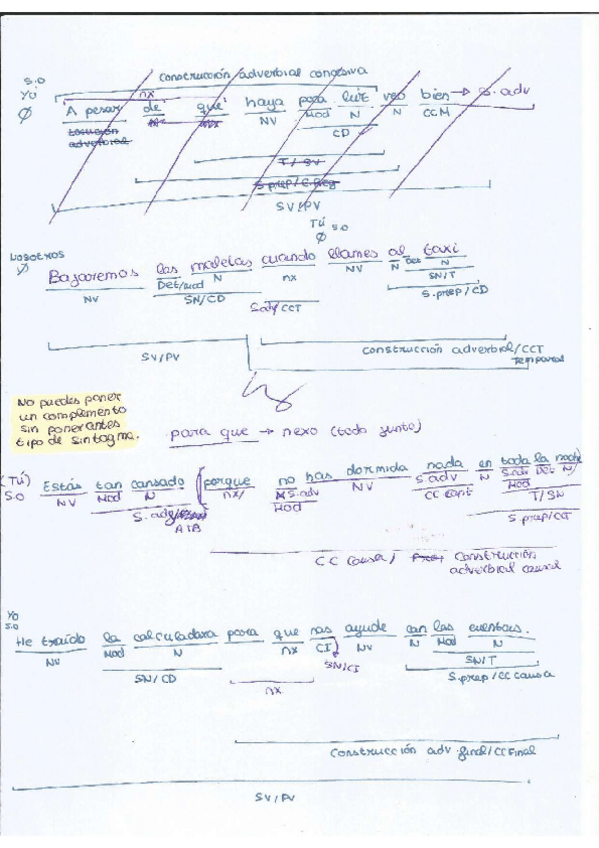 S.O Construcción adverbial concesiva
Yo nx
Ø A pesar de que haya poca luz veo bien → S. adv
Locución adverbial nx nx NV Mod N N CCM
CD
T/SV
S.prep/C.Reg
SV/PV
Tú S.O
Ø
Nosotros
Ø Bajaremos las maletas cuando llames al taxi
NV Det/Mod N nx NV N Det N
SN/CD SN/T
S.adv/CCT S.prep/CD
SV/PV Construcción adverbial/CCT
Temporal
No puedes poner
un complemento
sin poner antes
tipo de sintagma.
para que → nexo (todo junto)
(Tú) Estás tan cansado (porque no has dormido nada en toda la noche
S.O NV Mod N nx/ S.adv NV S adv N S.adv Det N
S.adj/ Mod CC cant Mod
ATB T/SN
S.prep/CCT
CC Causa/ Construcción
adverbial causal
Yo
S.O
He traído la calculadora para que nos ayude con las cuentas.
NV Mod N nx CI NV N Mod N
SN/CI SN/T
SN/CD nx S.prep/CC causa
Construcción adv.final/CC Final
SV/PV